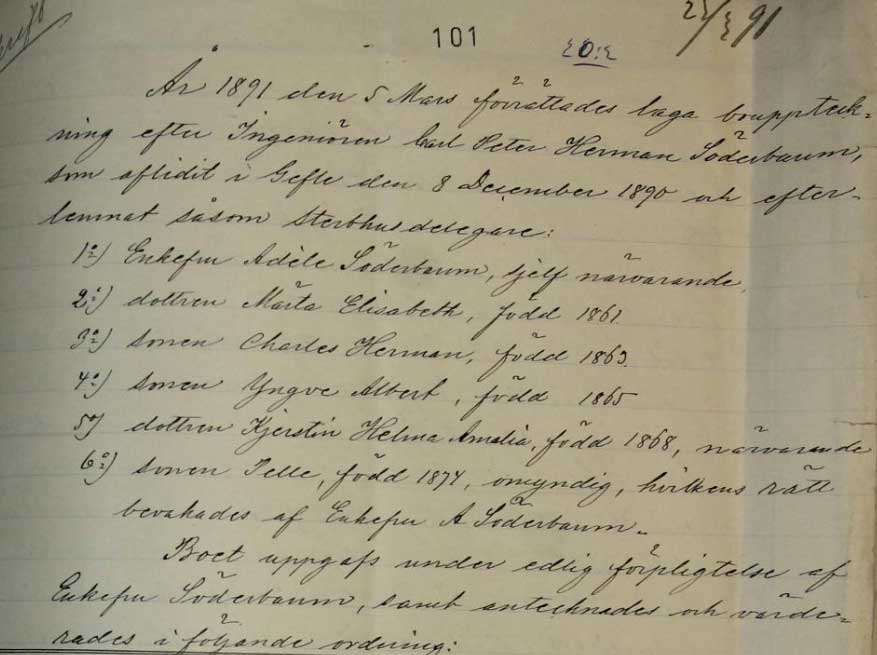 101
År 1891 den 5 Mars förrättades laga boupptek-
ning efter Ingeniören Carl Peter Herman Söderbaum,
som aflidit i Gefle den 8 December 1890 och efter-
lemnat såsom sterbhusdelegare:
1º) Enkefru Adèle Söderbaum, sjelf närvarande.
2º) dottren Märta Elisabeth, född 1861.
3º) sonen Charles Herman, född 1863.
4º) sonen Yngve Albert, född 1865
5º) dottren Kjerstin Helma Amalia, född 1868, närvarande
6º) sonen Pelle, född 1874, omyndig, hvilkens rätt
bevakades af Enkefru A Söderbaum.
Boet uppgafs under edlig förpligtelse af
Enkefru Söderbaum, samt antecknades och värde-
rades i följande ordning: